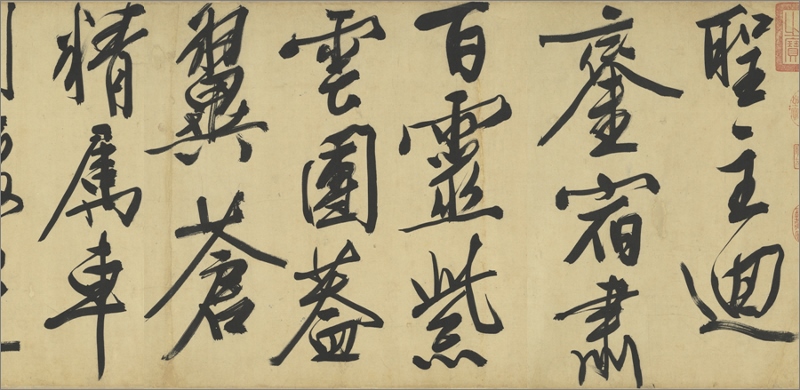 聖主迴
鑾宿肅
百靈紫
雲團蓋
翼蒼
精属車